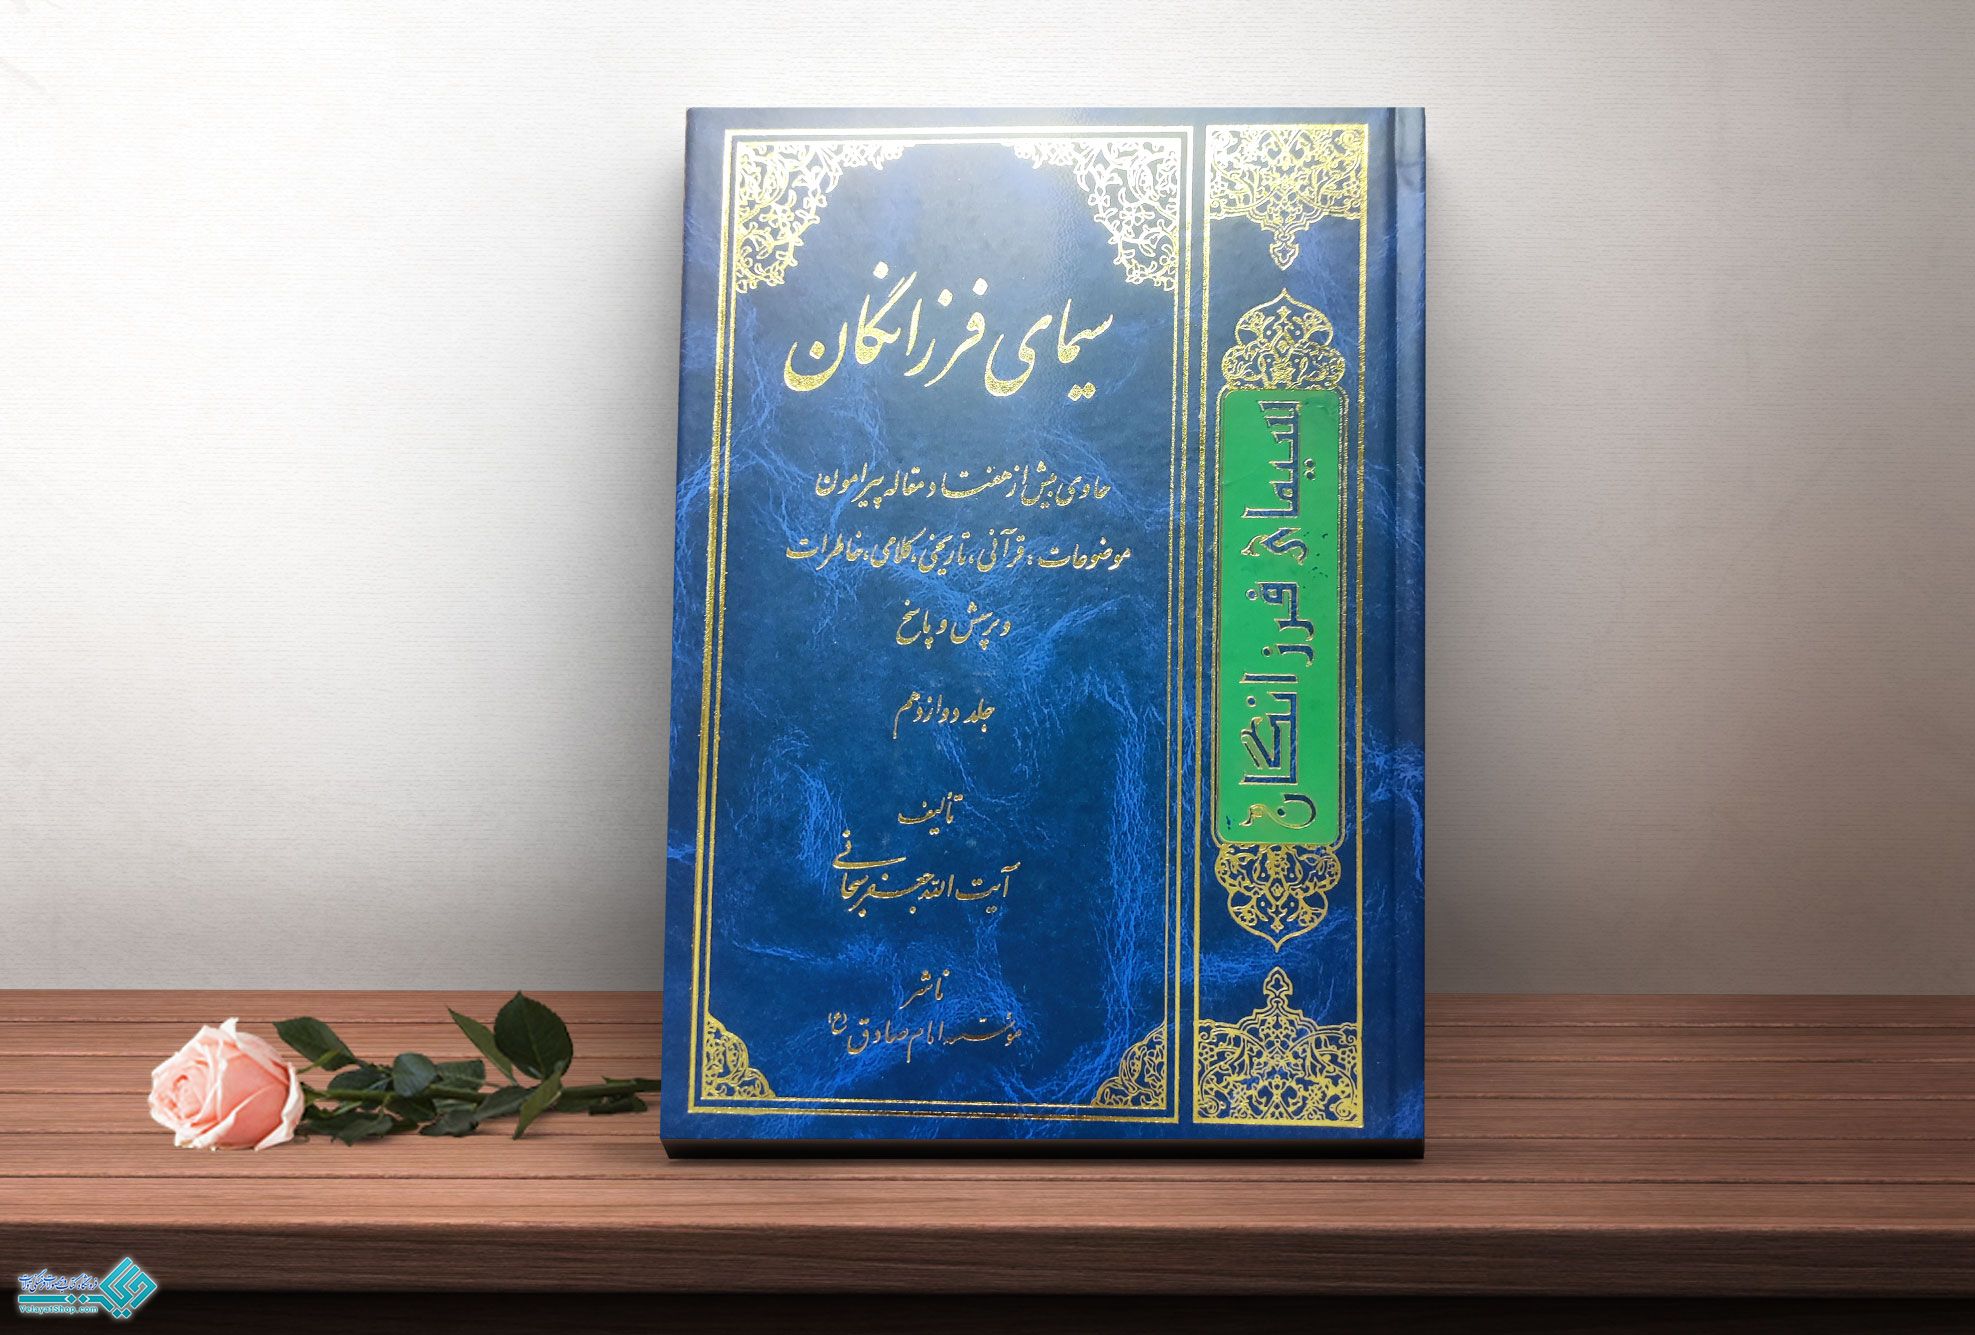 سیمای فرزانگان
حاوی بیش از هفتاد مقاله پیرامون
موضوعات: قرآنی، تاریخی، کلامی، خاطرات
و پرسش و پاسخ
جلد دوازدهم
تألیف
آیت الله جعفر سبحانی
ناشر
مؤسسه امام صادق (ع)
سیمای فرزانگان
VelayatShop.com